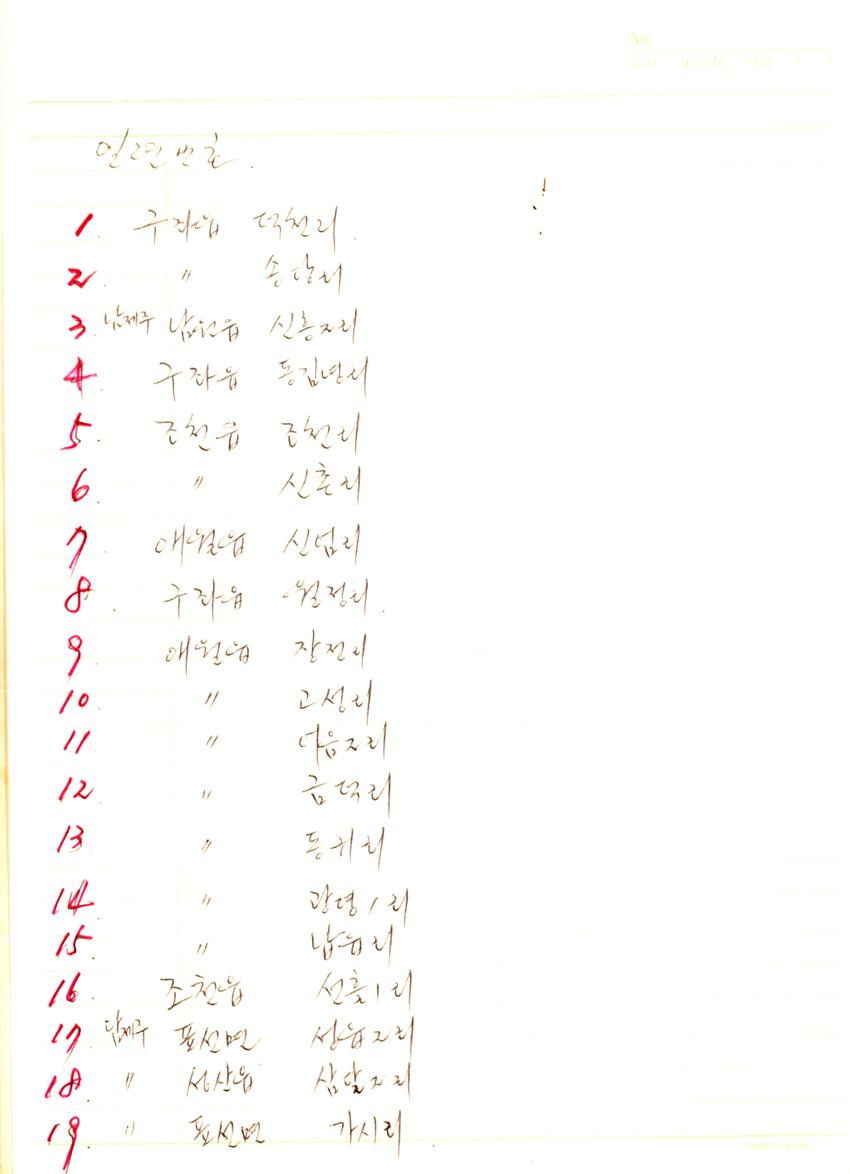 No
year month day
일련번호.
1. 구좌읍 덕천리.
2. 〃 송당리
3. 남제주 남원읍 신흥2리
4. 구좌읍 동김녕리
5. 조천읍 조천리
6. 〃 신촌리
7. 애월읍 신엄리
8. 구좌읍 월정리.
9. 애월읍 장전리
10. 〃 고성리
11. 〃 어음2리
12. 〃 금덕리
13. 〃 동귀리
14. 〃 광령1리
15. 〃 납읍리
16. 조천읍 선흘1리
17. 남제주 표선면 성읍2리
18. 〃 성산읍 삼달2리
19. 〃 표선면 가시리